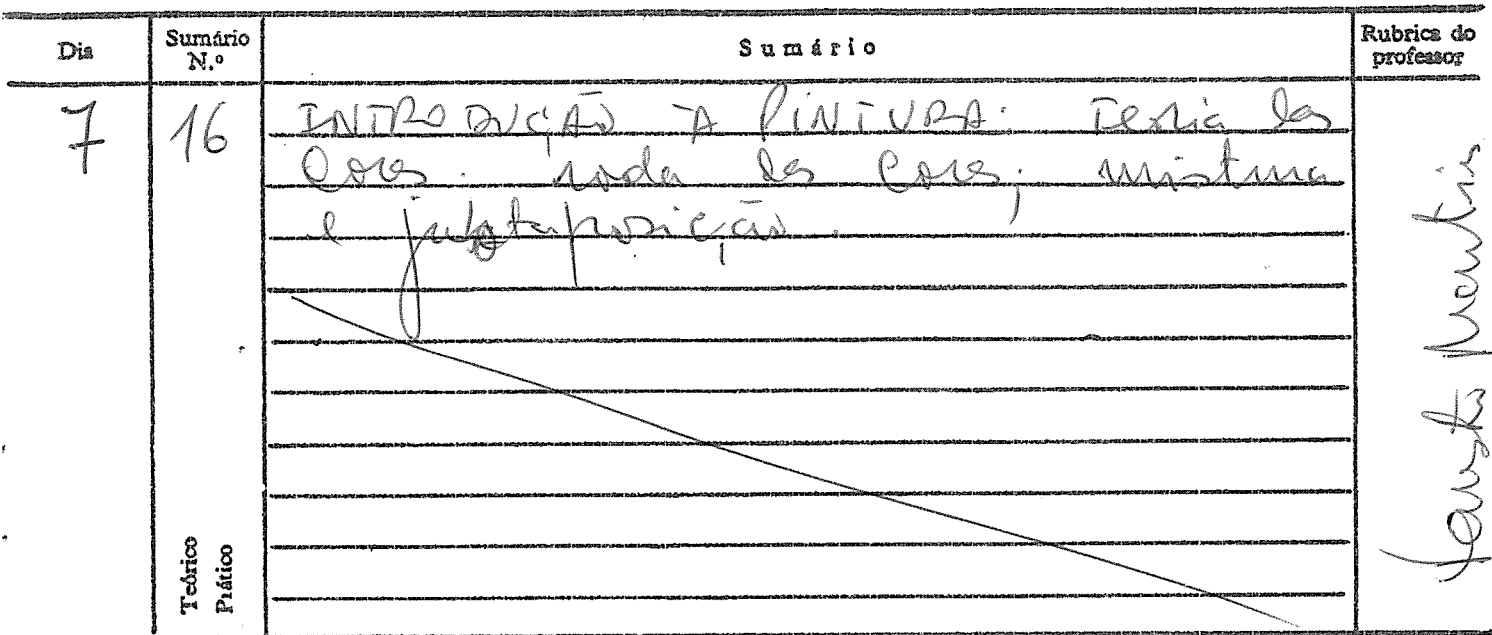 Dia Sumário N.º Sumário Rubrica do professor
7 16 INTRODUÇÃO À PINTURA. Teoria das
Cores. roda das Cores; mistura
e justaposição.
Teórico
Prático